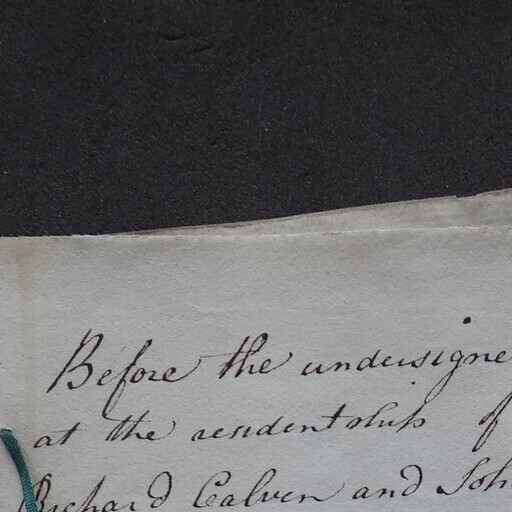 Before the undersigne
at the residentship of
Richard Calven and Joh